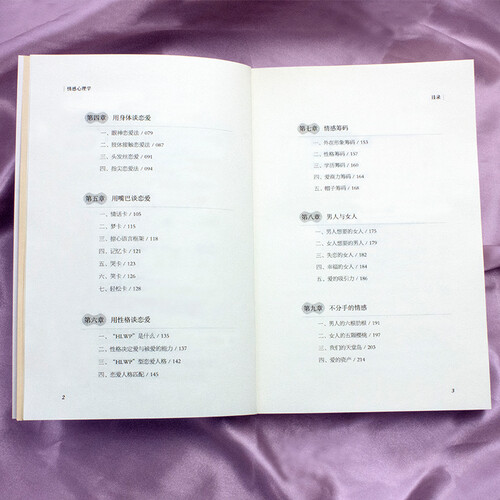 情感心理学
第四章 用身体谈恋爱
一、眼神恋爱法 / 079
二、肢体接触恋爱法 / 087
三、头发丝恋爱 / 091
四、指尖恋爱法 / 094
第五章 用嘴巴谈恋爱
一、情话卡 / 105
二、梦卡 / 115
三、掠心语言框架 / 118
四、记忆卡 / 121
五、哭卡 / 123
六、笑卡 / 126
七、轻松卡 / 128
第六章 用性格谈恋爱
一、“HLWP”是什么 / 135
二、性格决定爱与被爱的能力 / 137
三、“HLWP”型恋爱人格 / 142
四、恋爱人格匹配 / 145
2
目录
第七章 情感筹码
一、外在形象筹码 / 153
二、性格筹码 / 157
三、学历筹码 / 159
四、爱商力筹码 / 164
五、帽子筹码 / 168
第八章 男人与女人
一、男人想要的女人 / 175
二、女人想要的男人 / 179
三、失恋的女人 / 182
四、幸福的女人 / 184
五、爱的吸引力 / 186
第九章 不分手的情感
一、男人的六根肋根 / 191
二、女人的五颗樱桃 / 197
三、我们的天堂岛 / 203
四、爱的资产 / 214
3